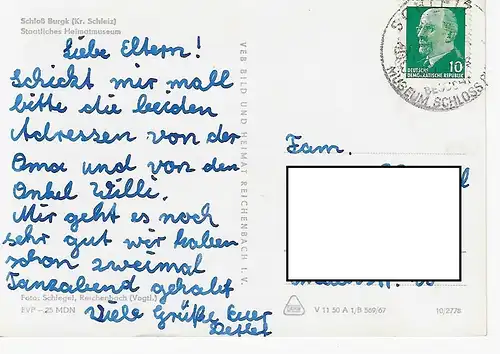 Schloß Burgk (Kr. Schleiz)
Staatliches Heimatmuseum
Liebe Eltern!
Schickt mir mall
bitte die beiden
Adressen von der
Oma und von den
Onkel Willi.
Mir geht es noch
sehr gut wir haben
schon zweimal
Tanzabend gehabt
Viele Grüße Euer
Detlef
Foto: Schlegel, Reichenbach (Vogtl.)
EVP – 25 MDN
VEB BILD UND HEIMAT REICHENBACH I. V.
DEUTSCHE
DEMOKRATISCHE REPUBLIK
10
MUSEUM SCHLOSS
Fam.
V 11 50 A 1/B 569/67
10/2776